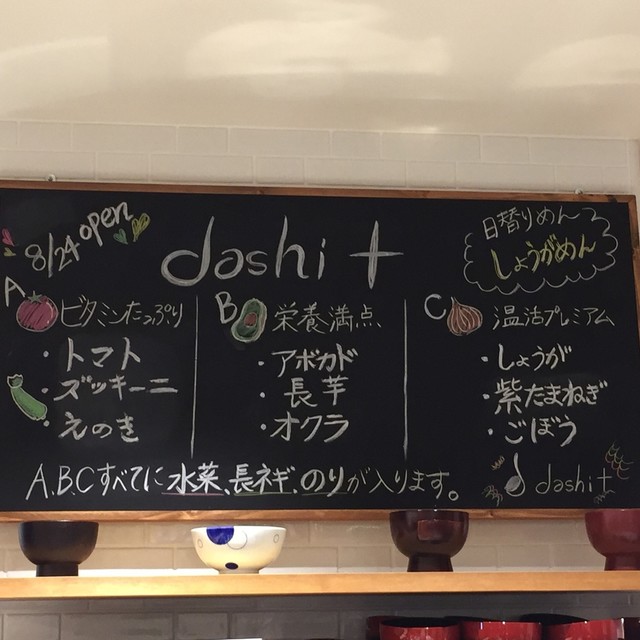 8/24 open
dashi +
日替りめん
しょうがめん
A ビタミンたっぷり
・トマト
・ズッキーニ
・えのき
B 栄養満点
・アボカド
・長芋
・オクラ
C 温活プレミアム
・しょうが
・紫たまねぎ
・ごぼう
A.B.Cすべてに水菜、長ネギ、のりが入ります。
dashi+